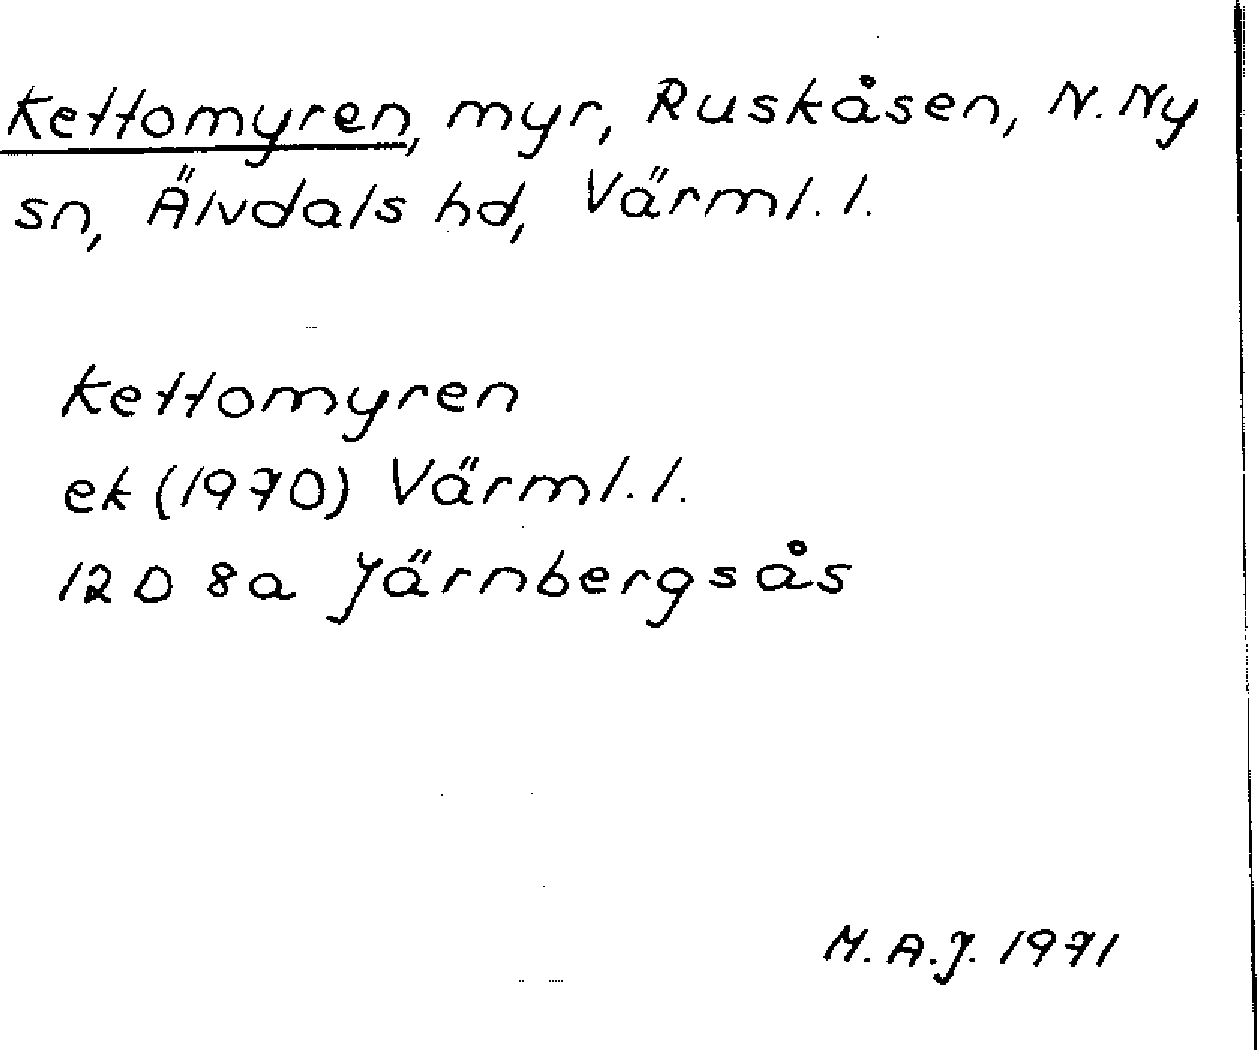 Kettomyren, myr, Ruskåsen, N. Ny
sn, Älvdals hd, Värml. l.
Kettomyren
ek (1970) Värml. l.
12 D 8a Järnbergsås
M. A. J. 1971